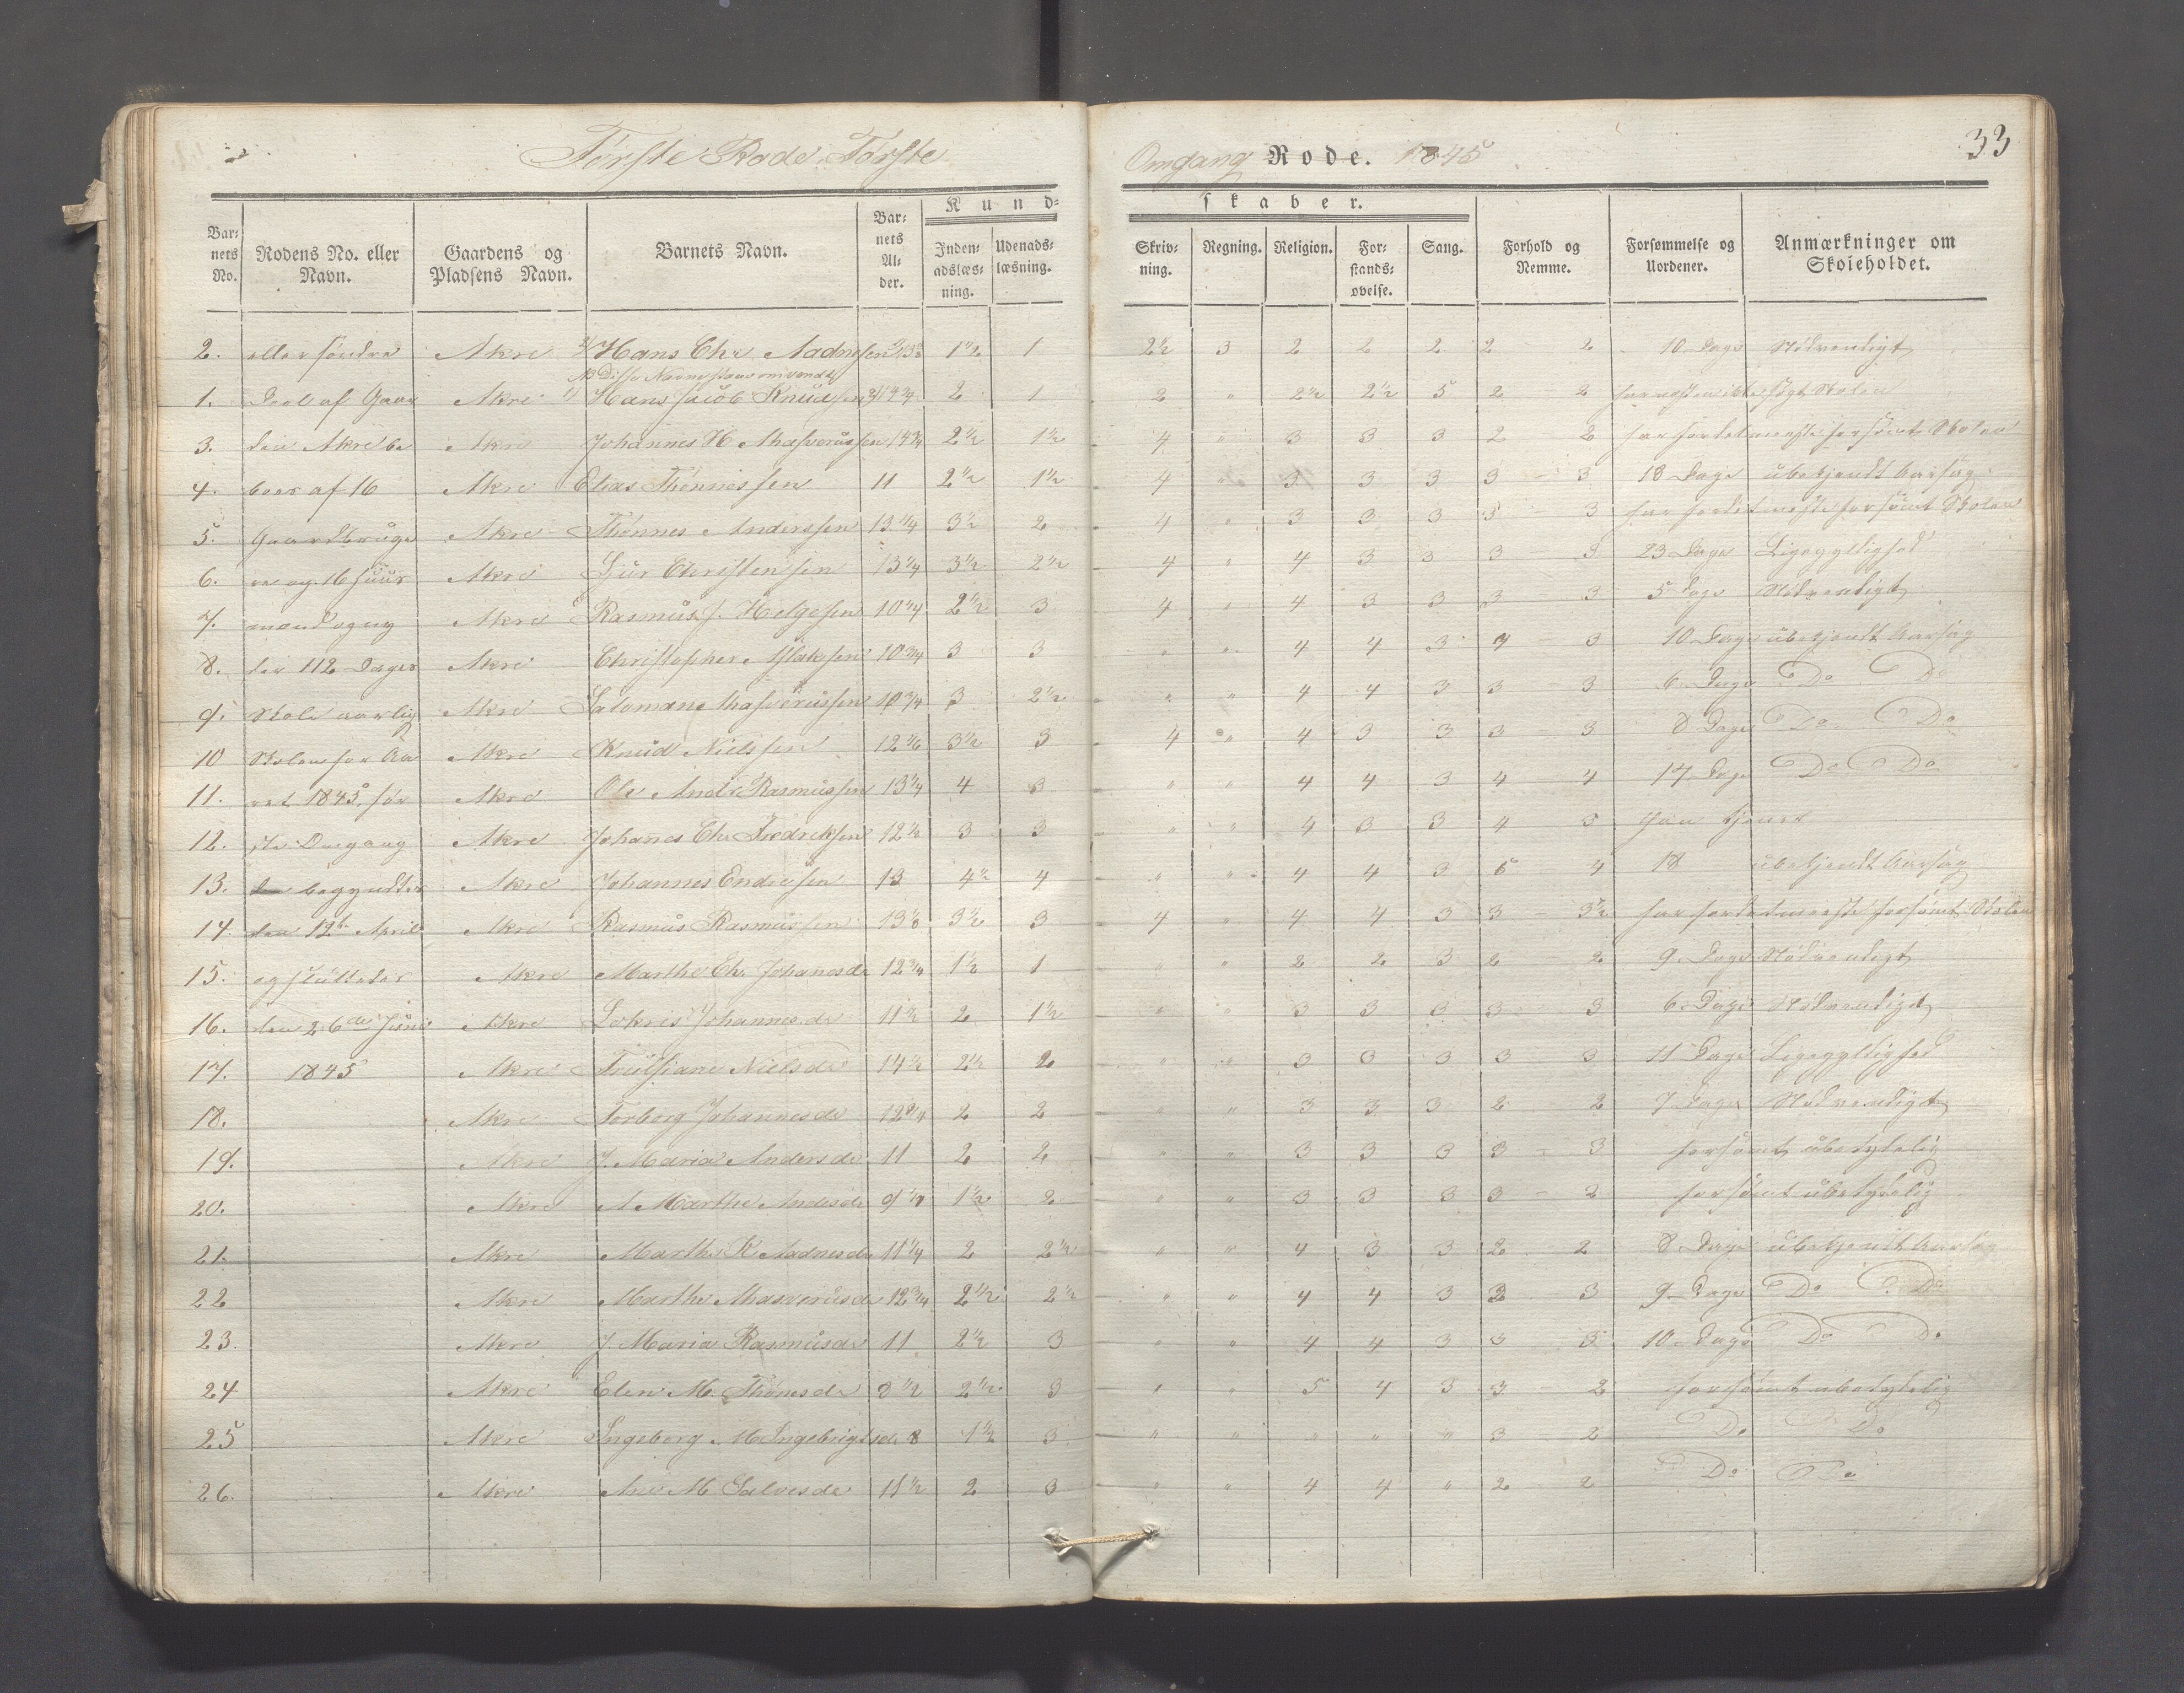 Første Rode Første Omgang Rode. 1845
33
Kund= skaber.
Bar= nets No.
Rodens No. eller Navn.
Gaardens og Pladsens Navn.
Barnets Navn.
Bar= nets Al= der.
Inden= adslæs= ning.
Udenads= læsning.
Skriv= ning.
Regning.
Religion.
For= stands= øvelse.
Sang.
Forhold og Nemme.
Forsømmelse og Uordener.
Anmærkninger om Skoleholdet.
2. eller søndre Akre Hans Chr. Aadnesen 1½ 1 2½ 3 2 2 2 2 - 2 10 Dage Nödvendigt
NB Disse Navne staar omvendt
1. Deel af Gaar Akre Hans Jacob Knudsen 2 1 2 " 2½ 2½ 5 2 - 2 har næsten ikke søgt Skolen
3. den Akre be Akre Johannes H 14¾ 2½ 1½ 4 " 3 3 3 2 2 har fordetmeste forsömt Skolen
4. boes af 16 Akre Elias Thönnessen 11 2½ 1½ 4 " 3 3 3 3 - 3 18 Dage ubekjendt Aarsag
5. Gaardbruge Akre Thönnes Anderssen 13¼ 3½ 2 4 " 3 3 3 3 - 3 har fordetmeste forsömt Skolen
6. re og 16 Huus Akre Sjur Christensen 13¼ 3½ 2½ 4 " 4 3 3 3 - 3 23 Dage Ligegyldighed
7. mænd og ny Akre Rasmus J. Helgesen 10¼ 2½ 3 4 " 4 3 3 3 3 5 Dage Nödvendigt
8. der 112 Dages Akre Christopher Aslaksen 10¾ 3 3 " " 4 4 3 4 - 3 10 Dage ubekjendt Aarsag
9. Skole aarlig Akre Salomon 10¾ 3 2½ " " 4 4 3 3 - 3 6 Dage Do Do
10 Skolen for Aa Akre Knud Nielssen 3½ 3 4 " 4 3 3 3 - 3 8 Dage Do Do
11. ret 1845, för Akre Ole Andr. Rasmussen 13¼ 4 3 " " 4 4 3 4 - 4 17 Dage Do Do
12. ste Omgang Akre Johanes Chr. Fredriksen 12½ 3 3 " " 4 3 3 4 - 3 han tjener
13. begyndtes Akre Johannes Endresen 13 4½ 4 " " 4 4 3 5 4 18 ubekjendt Aarsag
14. den 12te April Akre Rasmus Rasmussen 3½ 3 4 " 4 4 3 3 - 3½ har fordetmeste forsömt Skolen
15. og sluttedes Akre Marthe Chr. Johanesdr 12¾ 1½ 1 " " 2 2 3 2 2 9 Dage Nödvendigt
16. den 26de Juni Akre Johannesdr 11½ 2 1½ " " 3 3 3 3 - 3 6 Dage Nödvendigt
17. 1845 Akre Nielsdr 14½ 2½ 2 " " 3 3 3 3 3 11 Dage Ligegyldighed
18. Akre Torborg Johannesdr 2 2 " " 3 3 3 2 - 2 7 Dage Nödvendigt
19. Akre J. Maria Andersdr 11 2 2 " " 3 3 3 3 - 3 forsömt ubetydelig
20. Akre A Marthe 1½ 2 " " 3 3 3 3 - 2 forsömt ubetydelig
21. Akre Marthe K Aadnesdr 11¼ 2 2½ " " 4 3 3 2 - 2 8 Dage ubekjendt Aarsag
22 Akre Marthe 12¾ 2½ 2½ " " 4 4 3 2 - 3 9 Dage Do Do
23. Akre J. Maria Rasmusdr 11 2½ 3 " " 4 4 3 3 3 10 Dage Do Do
24 Akre Elen M. Thönesdr 8½ 2½ 3 " " 5 4 3 3 - 2 forsömt ubetydelig
25 Akre Ingeborg M Ingebrigtsdr 8 1½ 3 " " " " " 3 2 Do Do
26. Akre Ane M Salvesdr 11½ 2 3 " " 4 4 " 2 - 2 Do Do